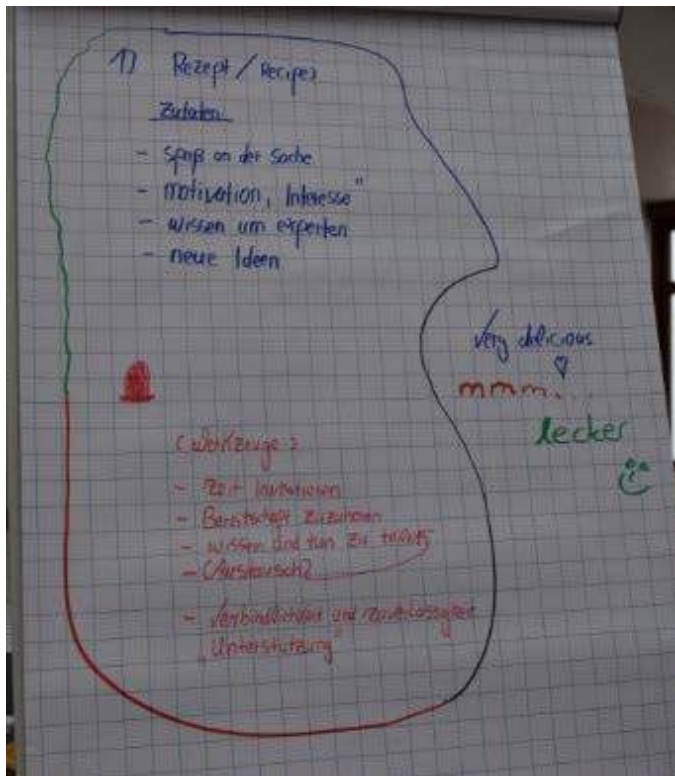 1) Rezept / Recipes
Zutaten
- Spaß an der Sache
- motivation, Interesse"
- wissen um experten
- neue Ideen
very delicious
mmm...
lecker
(Werkzeuge)
- Zeit
- Bereitschaft zuzuhören
- wissen und tun zu
- (Austausch)
- Verbindlichkeit und zuverlässigkeit
"Unterstützung"